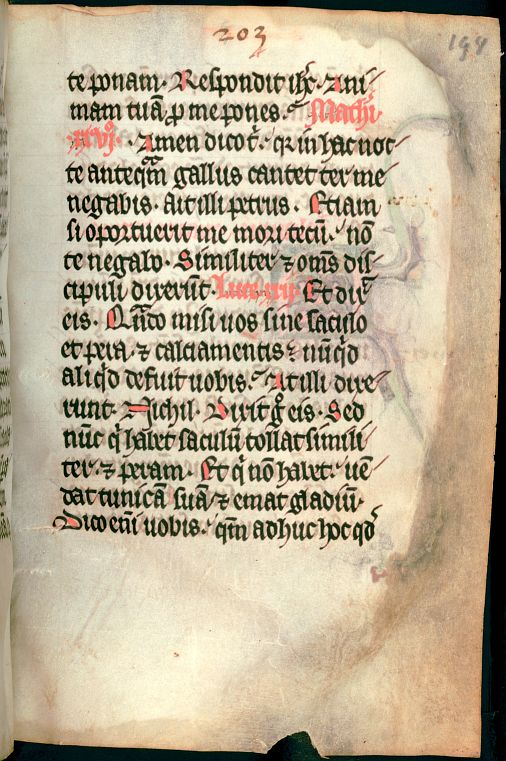 203
198
te ponam. Respondit ihc̄. Ani
mam tuā p̱ me pones. Mathi
xxvj. Amen dico t̄. qꝛ in hac noc
te anteqᵃm gallus cantet ter me
negabis. Ait illi petrus. Etiam
si oportuerit me mori tecū. nō
te negabo. Similiter ⁊ om̄s dis
cipuli dixerūt. Luce xxij. Et dix̄
eis. Qn̄do misi uos sine sacculo
et pera. ⁊ calciamentis? nūqͥd
aliqͥd defuit uobis. At illi dixe
runt. Nichil. Dixit gͦ eis. Sed
nūc qͥ habet sacculū tollat simili
ter. ⁊ peram. Et qͥ nō habet. uē
dat tunicā suā ⁊ emat gladiū.
Dico em̄ uobis. qm̄ adhuc hoc qd̄